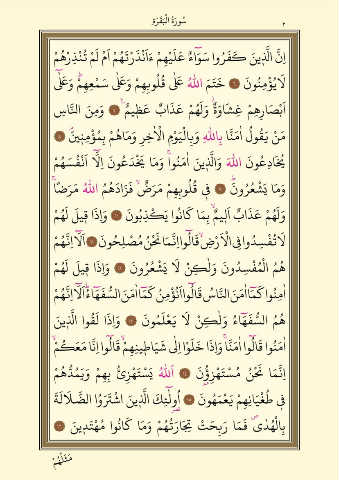 سُورَةُ الْبَقَرَةِ
٢
اِنَّ الَّذ۪ينَ كَفَرُوا سَوَٓاءٌ عَلَيْهِمْ ءَاَنْذَرْتَهُمْ اَمْ لَمْ تُنْذِرْهُمْ
لَا يُؤْمِنُونَ ٦ خَتَمَ اللّٰهُ عَلٰى قُلُوبِهِمْ وَعَلٰى سَمْعِهِمْۜ وَعَلٰٓى
اَبْصَارِهِمْ غِشَاوَةٌۘ وَلَهُمْ عَذَابٌ عَظ۪يمٌ۟ ٧ وَمِنَ النَّاسِ
مَنْ يَقُولُ اٰمَنَّا بِاللّٰهِ وَبِالْيَوْمِ الْاٰخِرِ وَمَا هُمْ بِمُؤْمِن۪ينَۢ ٨
يُخَادِعُونَ اللّٰهَ وَالَّذ۪ينَ اٰمَنُواۚ وَمَا يَخْدَعُونَ اِلَّٓا اَنْفُسَهُمْ
وَمَا يَشْعُرُونَۜ ٩ ف۪ي قُلُوبِهِمْ مَرَضٌۙ فَزَادَهُمُ اللّٰهُ مَرَضًاۚ
وَلَهُمْ عَذَابٌ اَل۪يمٌۙ بِمَا كَانُوا يَكْذِبُونَ ١٠ وَاِذَا ق۪يلَ لَهُمْ
لَا تُفْسِدُوا فِي الْاَرْضِۙ قَالُٓوا اِنَّمَا نَحْنُ مُصْلِحُونَ ١١ اَلَٓا اِنَّهُمْ
هُمُ الْمُفْسِدُونَ وَلٰكِنْ لَا يَشْعُرُونَ ١٢ وَاِذَا ق۪يلَ لَهُمْ
اٰمِنُوا كَمَٓا اٰمَنَ النَّاسُ قَالُٓوا اَنُؤْمِنُ كَمَٓا اٰمَنَ السُّفَهَٓاءُۜ اَلَٓا اِنَّهُمْ
هُمُ السُّفَهَٓاءُ وَلٰكِنْ لَا يَعْلَمُونَ ١٣ وَاِذَا لَقُوا الَّذ۪ينَ
اٰمَنُوا قَالُٓوا اٰمَنَّاۚ وَاِذَا خَلَوْا اِلٰى شَيَاط۪ينِهِمْۙ قَالُٓوا اِنَّا مَعَكُمْۙ
اِنَّمَا نَحْنُ مُسْتَهْزِؤُ۫نَ ١٤ اَللّٰهُ يَسْتَهْزِئُ بِهِمْ وَيَمُدُّهُمْ
ف۪ي طُغْيَانِهِمْ يَعْمَهُونَ ١٥ اُو۬لٰٓئِكَ الَّذ۪ينَ اشْتَرَوُا الضَّلَالَةَ
بِالْهُدٰىۖ فَمَا رَبِحَتْ تِجَارَتُهُمْ وَمَا كَانُوا مُهْتَد۪ينَ ١٦
مَثَلُهُمْ